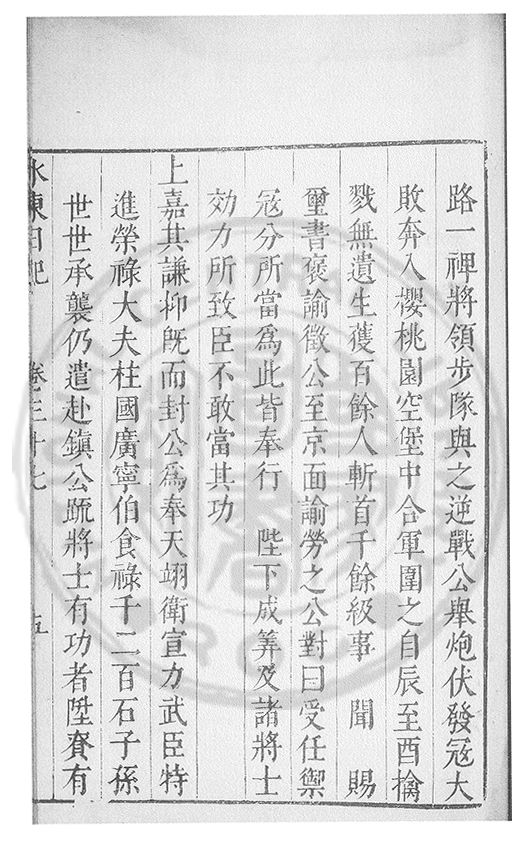 路一禆將領步隊與之逆戰公舉炮伏發冦大
敗奔入櫻桃園空堡中合軍圍之自辰至酉擒
戮無遺生獲百餘人斬首千餘級事　聞　賜
璽書褒諭徵公至京面諭勞之公對曰受任禦
冦分所當爲此皆奉行　陛下成筭及諸將士
効力所致臣不敢當其功
上嘉其謙抑旣而封公爲奉天翊衛宣力武臣特
進榮祿大夫柱國廣寧伯食祿千二百石子孫
世世承襲仍遣赴鎮公䟽將士有功者陞賚有
水東日記　卷三十七　五